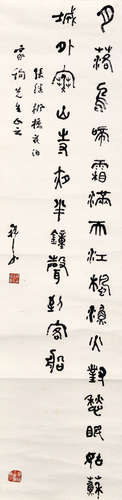 月落烏啼霜滿天江楓漁火對愁眠姑蘇
城外寒山寺夜半鐘聲到客船
張繼楓橋夜泊
先生正之